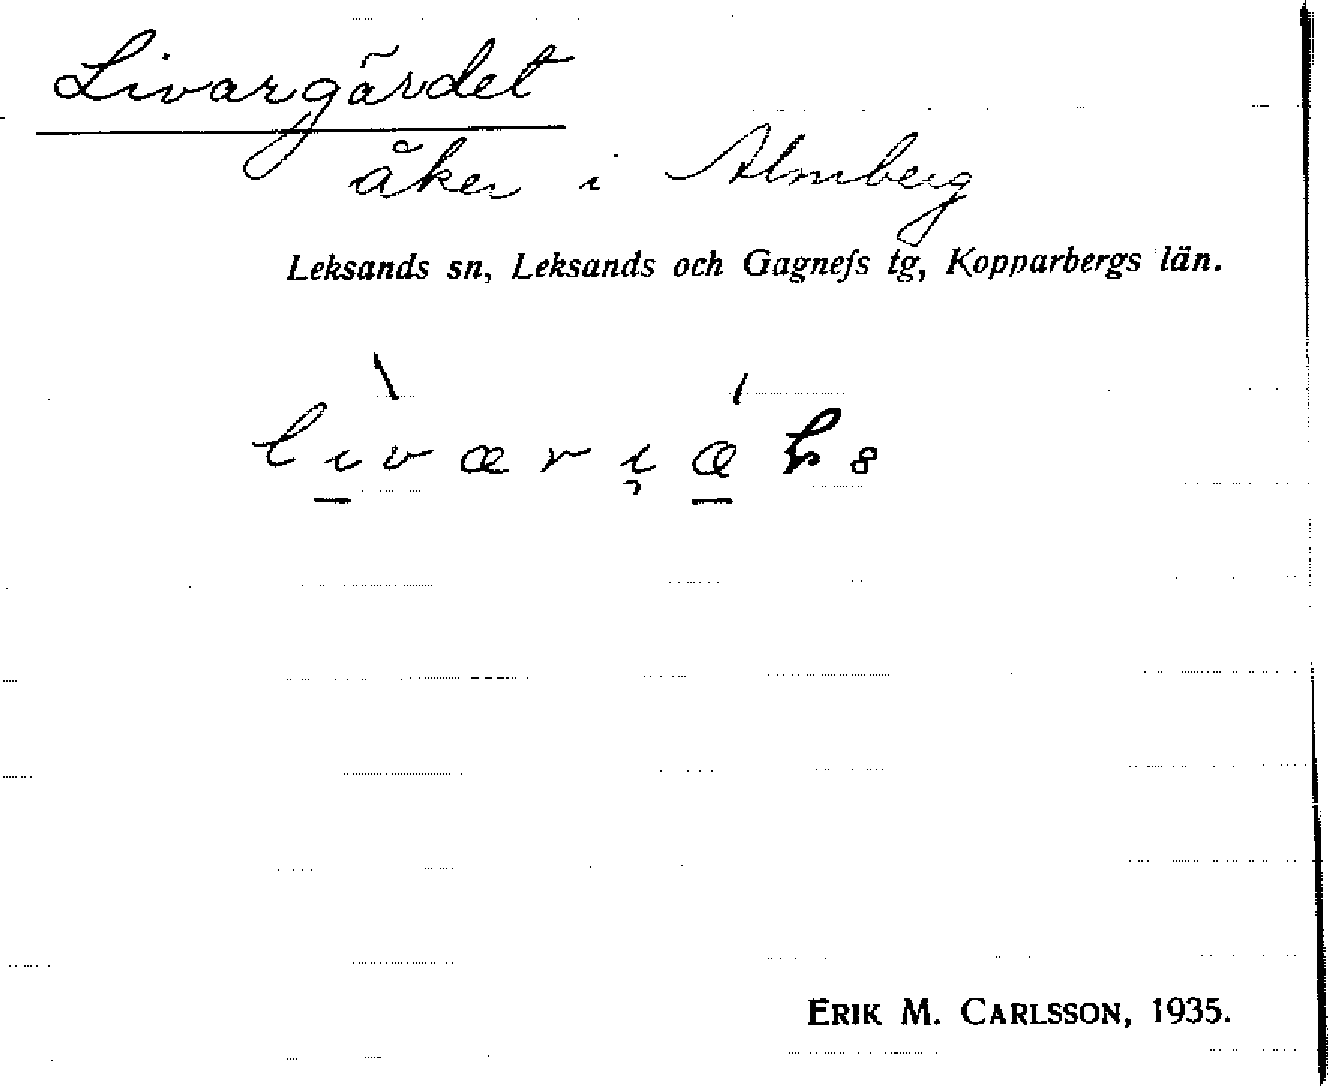 Livargärdet
åker i Almberg
Leksands sn, Leksands och Gagnefs tg, Kopparbergs län.
ERIK M. CARLSSON, 1935.